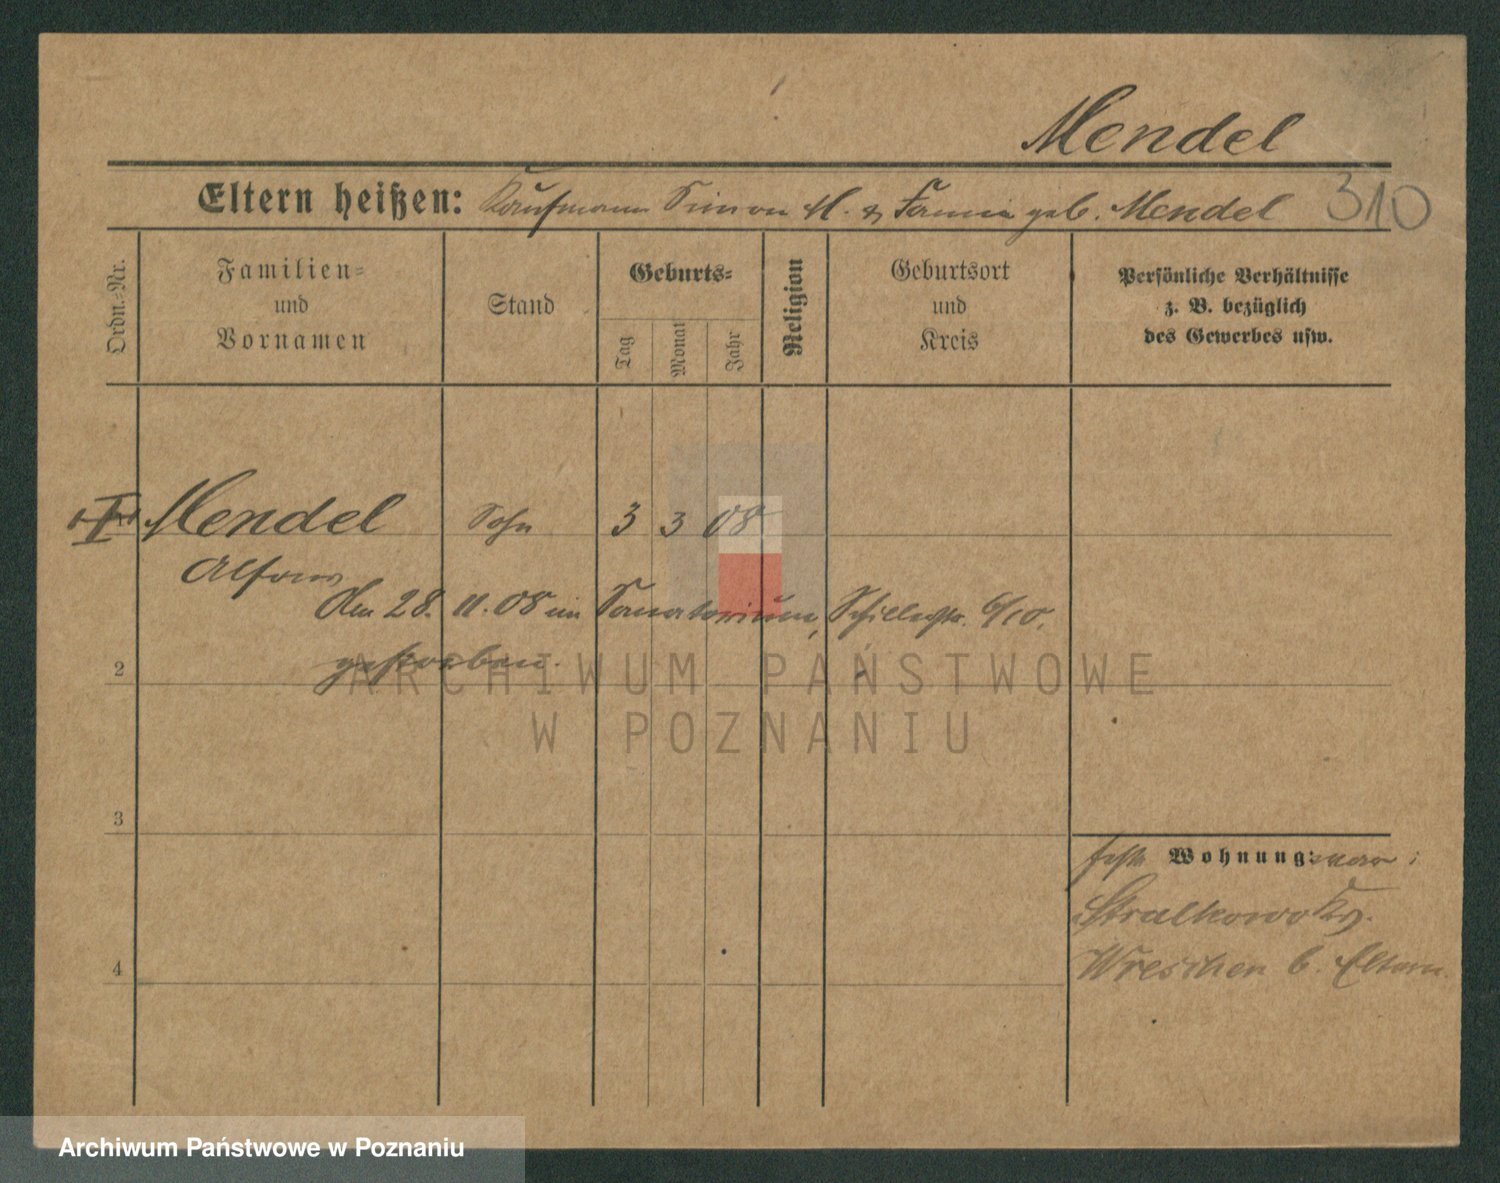 Mendel
Eltern heißen: Kaufmann Simon M. & Fannie geb. Mendel 310
Ordn.-Nr.
Familien-
und
Vornamen
Stand
Geburts-
Tag
Monat
Jahr
Religion
Geburtsort
und
Kreis
Persönliche Verhältnisse
z. B. bezüglich
des Gewerbes usw.
I Mendel Sohn 3 3 08
Alfons
Am 28. 11. 08 im Sanatorium, Schillerstr. 6/10.
gestorben.
2
ARCHIWUM PAŃSTWOWE
W POZNANIU
3
feste Wohnung: war:
Stralkowo Kr.
4
Wreschen b. Eltern.
Archiwum Państwowe w Poznaniu